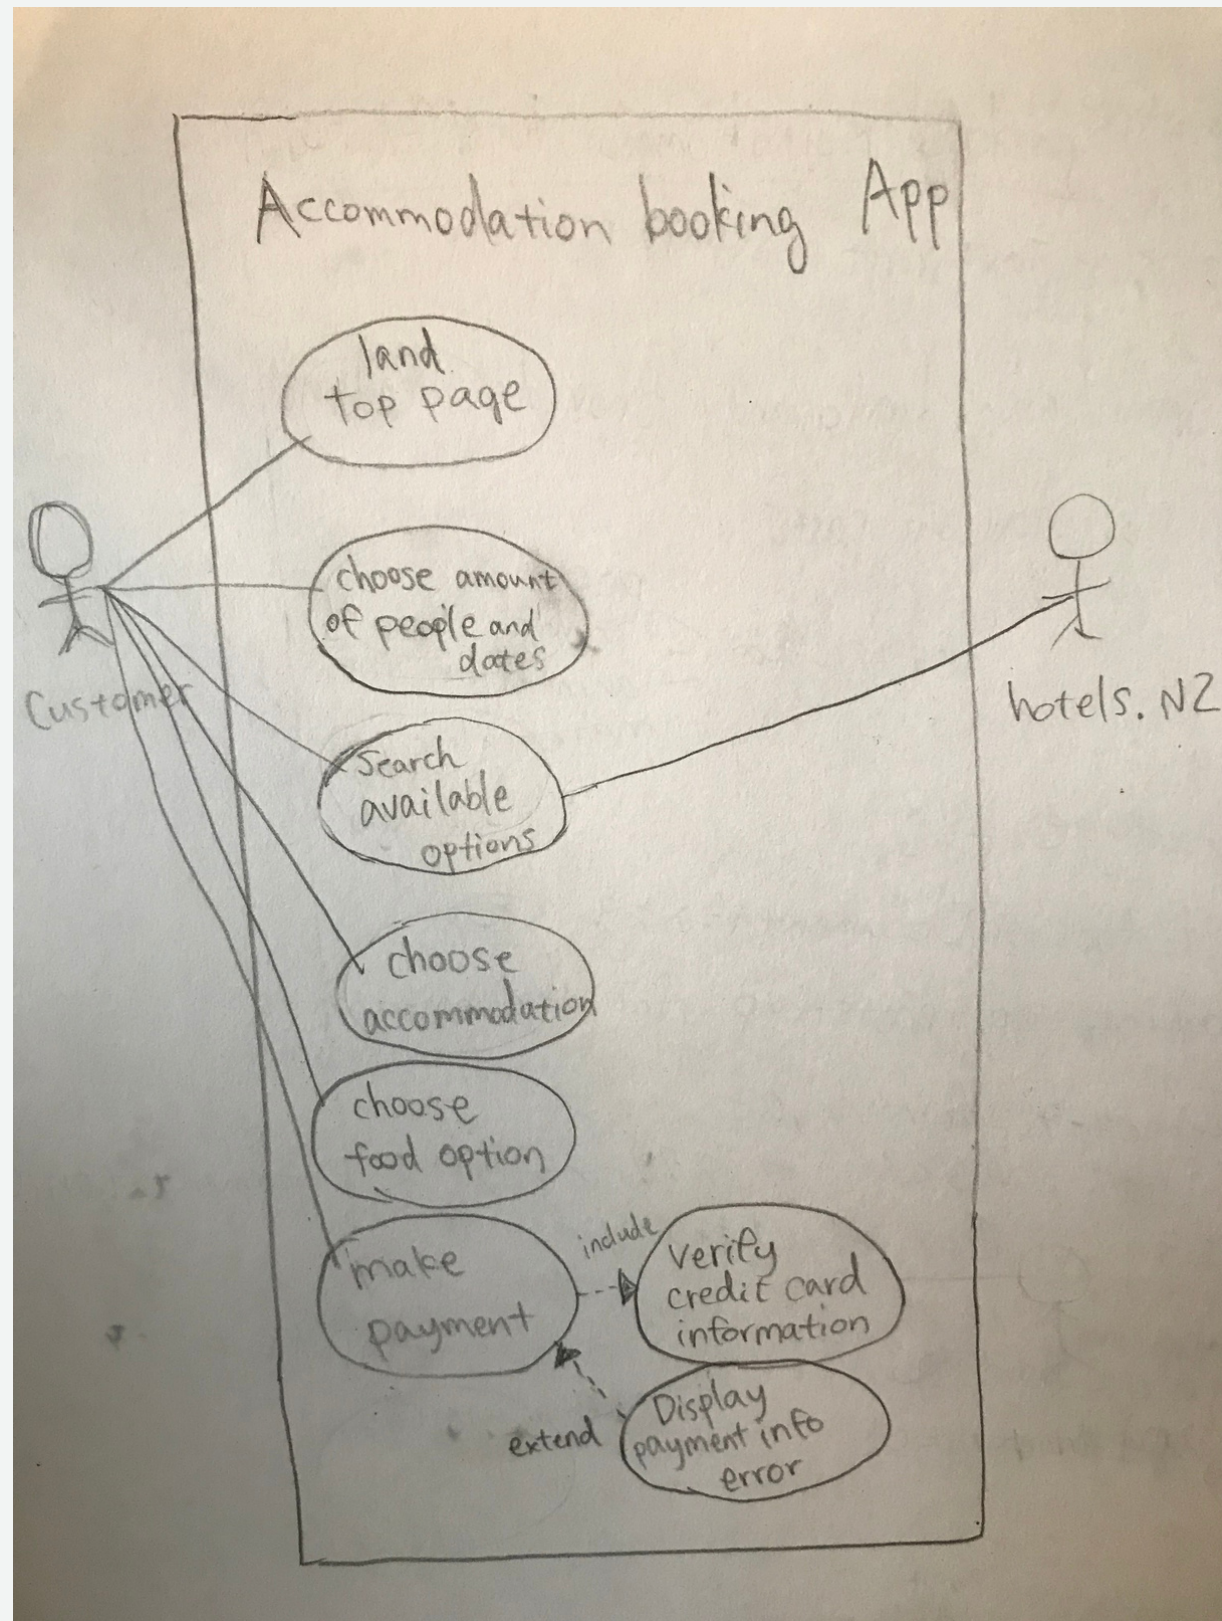 Accommodation booking App
land
top page
choose amount
of people and
dates
Customer
hotels.NZ
Search
available
options
choose
accommodation
choose
food option
make
payment
include
verify
credit card
information
extend
Display
payment info
error